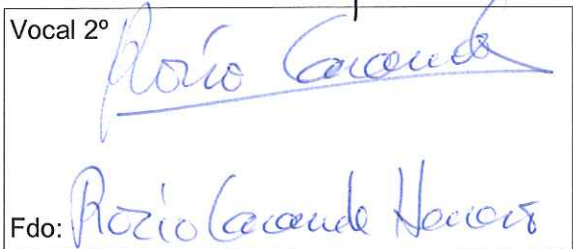 Vocal 2º
Rocío Carande
Fdo: Rocío Carande Herrero